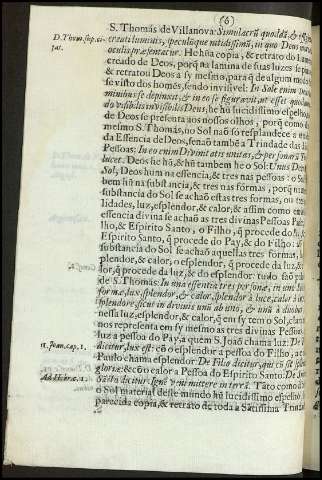 (6)
S. Thomás de Villanova: Simulacrũ quoddã, & effigiem
D. Thom. sup. ci-
tat.
creati luminis, speculũque nitidissimũ, in quo Deus
oculis præsentatur. He hũa copia, & retrato do Lume
creado de Deos, porq̃ na lamina de suas luzes se pin
& retratou Deos a sy mesmo, para q̃ de algum modo
se visto dos homẽs, sendo invisivel: In Sole enim Deus
minimus se depinxit, & in eo se figuravit, ut esset quodam
do visibilis invisibilis Deus; he hũ lucidissimo espelho, on
de Deos se presenta aos nossos olhos, porq̃ como diz
mesmo S. Thomás, no Sol naõ só resplandece a uni
da Essencia de Deos, senaõ tambẽa Trindade das divi
Pessoas: In eo enim Divinitatis unitas, & personarũ Tri
lucet. Deos he hũ, & hũ tambem he o Sol: Unus Deus
Sol; Deos hum na essencia, & tres nas pessoas: o Sol
bem hũ na substancia, & tres nas formas, porq̃ na
substancia do Sol se achaõ estas tres formas, ou tres
lidades, luz, esplendor, & calor; & assim como em
essencia divina se achaõ as tres divinas Pessoas Pay,
lho, & Espirito Santo, o Filho, q̃ procede do
Espirito Santo, q̃ procede do Pay, & do Filho: assi
substancia do Sol se achaõ aquellas tres formas, luz
plendor, & calor, o esplendor, q̃ procede da luz, & o
lor, q̃ procede da luz, & do esplendor: tudo saõ pala
de S. Thomás: In una essentia tres personæ, in una luce
formæ, lux, splendor, & calor, splendor à luce, calor à luce,
splendore: sicut in divinis unũ ab uno, & unũ à duobus
nesta luz, esplendor, & calor, q̃ em sy tem o Sol, clara
nos representa em sy mesmo as tres divinas Pessoas
luz a pessoa do Pay, à quẽ S. Joaõ chama luz: Deus
1. Joan. cap. 1.
dicitur, lux est: cõ o esplendor à pessoa do Filho, a que
Paulo chama esplendor: De Filio dicitur, qui cũ sit splendor
gloriæ: & cõ o calor a Pessoa do Espirito Santo: De Spiritu
Ad Hebr. c. 1.
Sãcto dicitur: Ignẽ veni mittere in terrã. Tãto como isto
o Sol material deste mundo hũ lucidissimo espelho,
parecida copia, & retrato de toda a Sãtissima Trinda